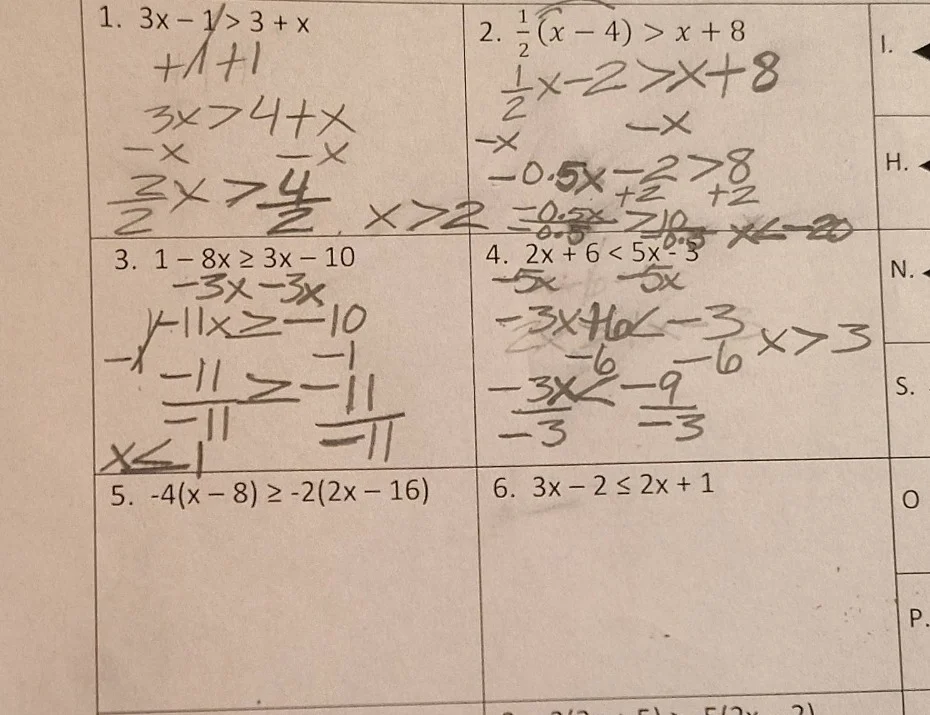 1. 3x – 1 > 3 + x
+1 +1
3x > 4 + x
-x -x
2/2 x > 4/2 x > 2
2. 1/2 (x – 4) > x + 8
1/2 x - 2 > x + 8
-x -x
-0.5x - 2 > 8
+2 +2
-0.5x/-0.5 > 10/-0.5 x < -20
3. 1 – 8x ≥ 3x – 10
-3x -3x
1 -11x ≥ -10
-1 -1
-11/-11 ≥ -11/-11
x ≤ 1
4. 2x + 6 < 5x - 3
-5x -5x
-3x + 6 < -3
-6 -6 x > 3
-3x/-3 < -9/-3
5. -4(x – 8) ≥ -2(2x – 16)
6. 3x – 2 ≤ 2x + 1
I.
H.
N.
S.
O
P.